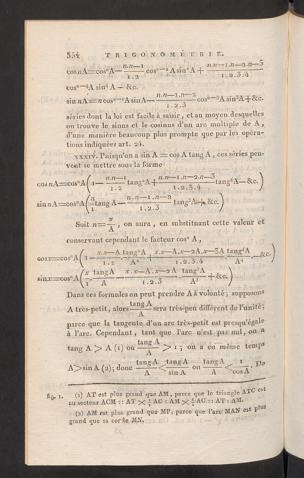 354 TRIGONOMÉTRIE.
cos nA=cosⁿA−(n.n−1)/(1.2) cosⁿ⁻²A sin²A + (n.n−1.n−2.n−3)/(1.2.3.4)
cosⁿ⁻⁴A sin⁴A − &c.
sin nA=n cosⁿ⁻¹A sin A − (n.n−1.n−2)/(1.2.3) cosⁿ⁻³A sin³A+&c.
séries dont la loi est facile à saisir, et au moyen desquelles
on trouve le sinus et le cosinus d'un arc multiple de A,
d'une manière beaucoup plus prompte que par les opéra-
tions indiquées art. 24.
XXXIV. Puisqu'on a sin A = cos A tang A, ces séries peu-
vent se mettre sous la forme
cos nA=cosⁿA(1−(n.n−1)/(1.2) tang²A+(n.n−1.n−2.n−3)/(1.2.3.4) tang⁴A−&c.)
sin nA=cosⁿA((n/1) tang A−(n.n−1.n−2)/(1.2.3) tang³A+&c.)
Soit n=x/A, on aura, en substituant cette valeur et
conservant cependant le facteur cosⁿA,
cos x=cosⁿA(1−(x.x−A)/(1.2) (tang²A)/(A²)+(x.x−A.x−2A.x−3A)/(1.2.3.4) (tang⁴A)/(A⁴)−&c.)
sin x=cosⁿA((x/1) (tang A)/(A)−(x.x−A.x−2A)/(1.2.3) (tang³A)/(A³)+&c.)
Dans ces formules on peut prendre A à volonté ; supposons
A très-petit, alors (tang A)/(A) sera très-peu différent de l'unité ;
parce que la tangente d'un arc très-petit est presqu'égale
à l'arc. Cependant, tant que l'arc n'est pas nul, on a
tang A > A (1) ou (tang A)/(A) > 1 ; on a en même temps
A>sin A (2) ; donc (tang A)/(A) < (tang A)/(sin A) ou (tang A)/(A) < 1/(cos A). De
fig. 1. (1) AT est plus grand que AM, parce que le triangle ATC est
au secteur ACM :: AT × ½ AC : AM × ½ AC :: AT : AM.
(2) AM est plus grand que MP, parce que l'arc MAN est plus
grand que sa corde MN.